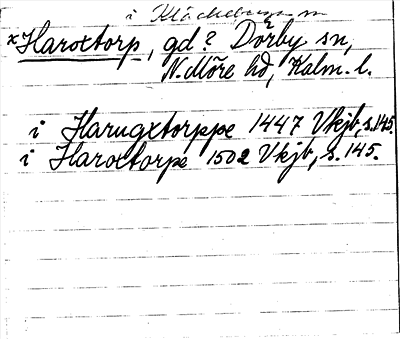 i
x Haroxtorp, gd? Dörby sn,
N. Möre hd, Kalm. l.
i Harugxtorppe 1447 Vkjb, s. 145.
i Haroxtorpe 1502 Vkjb, s. 145.